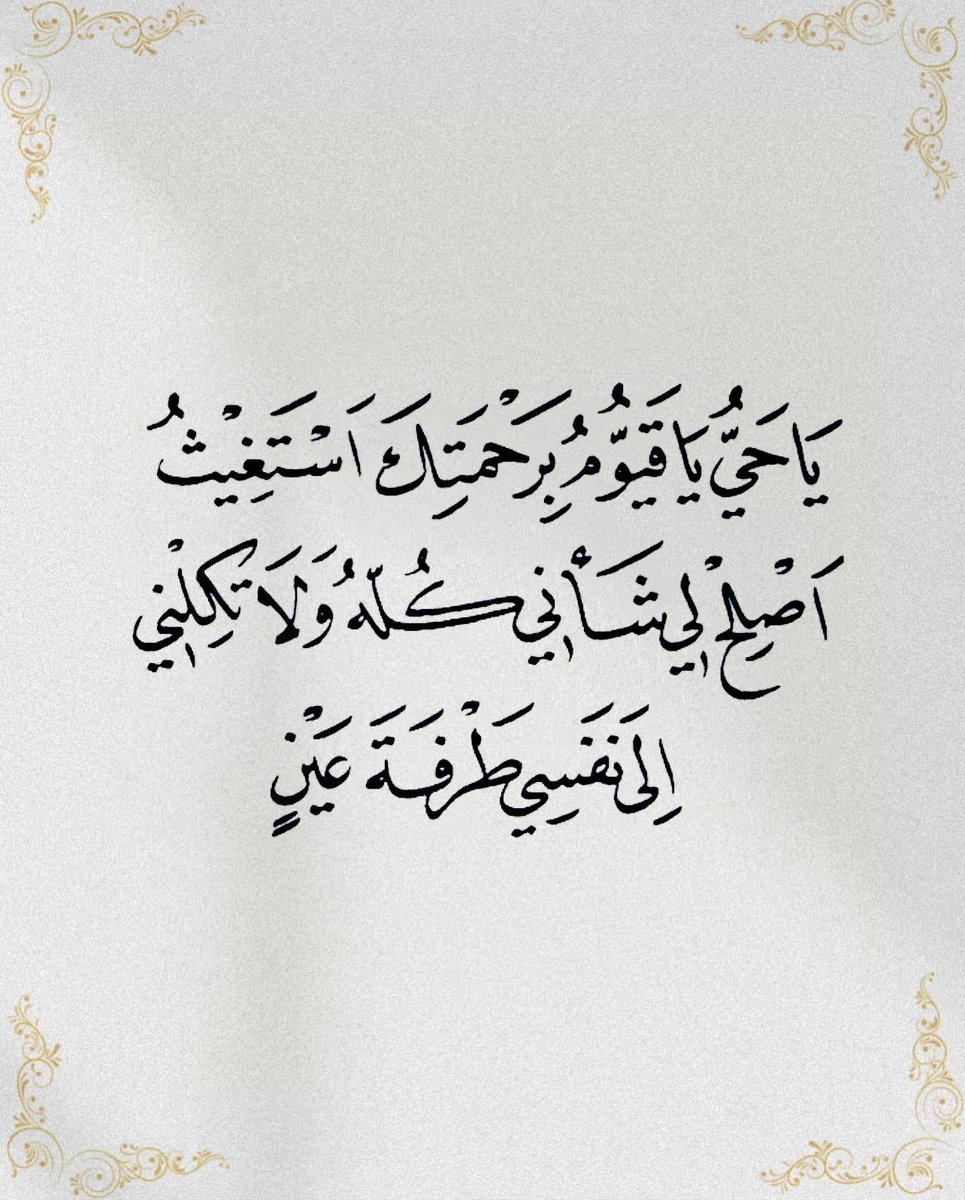 يَا حَيُّ يَا قَيُّومُ بِرَحْمَتِكَ اَسْتَغِيْثُ
اَصْلِحْ لِي شَأنِي كُلّهُ وَلَا تَكِلْنِي
اِلَى نَفَسِي طَرْفَةَ عَيْنٍ